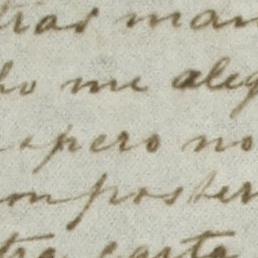 tras man
ho me aleg
espero no
imposter
tra carta